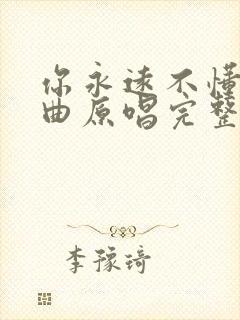 你永远不懂
曲原唱完整
李豫琦